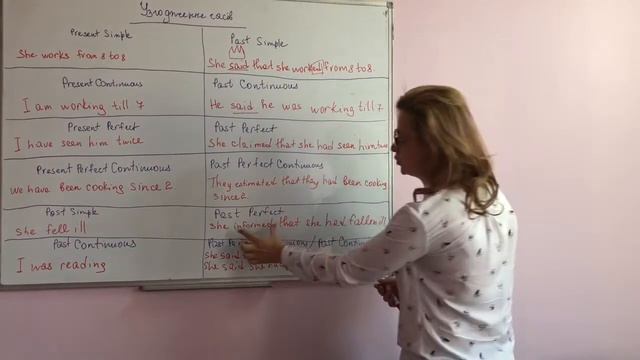 Узгодження часів
Present Simple
She works from 8 to 8
Past Simple
She said that she worked from 8 to 8.
Present Continuous
I am working till 7
Past Continuous
He said he was working till 7
Present Perfect
I have seen him twice
Past Perfect
She claimed that she had seen him twice
Present Perfect Continuous
we have been cooking since 2
Past Perfect Continuous
They estimated that they had been cooking
since 2
Past Simple
She fell ill
Past Perfect
She informed that she had fallen ill
Past Continuous
I was reading
Past / Past
She said
She said she